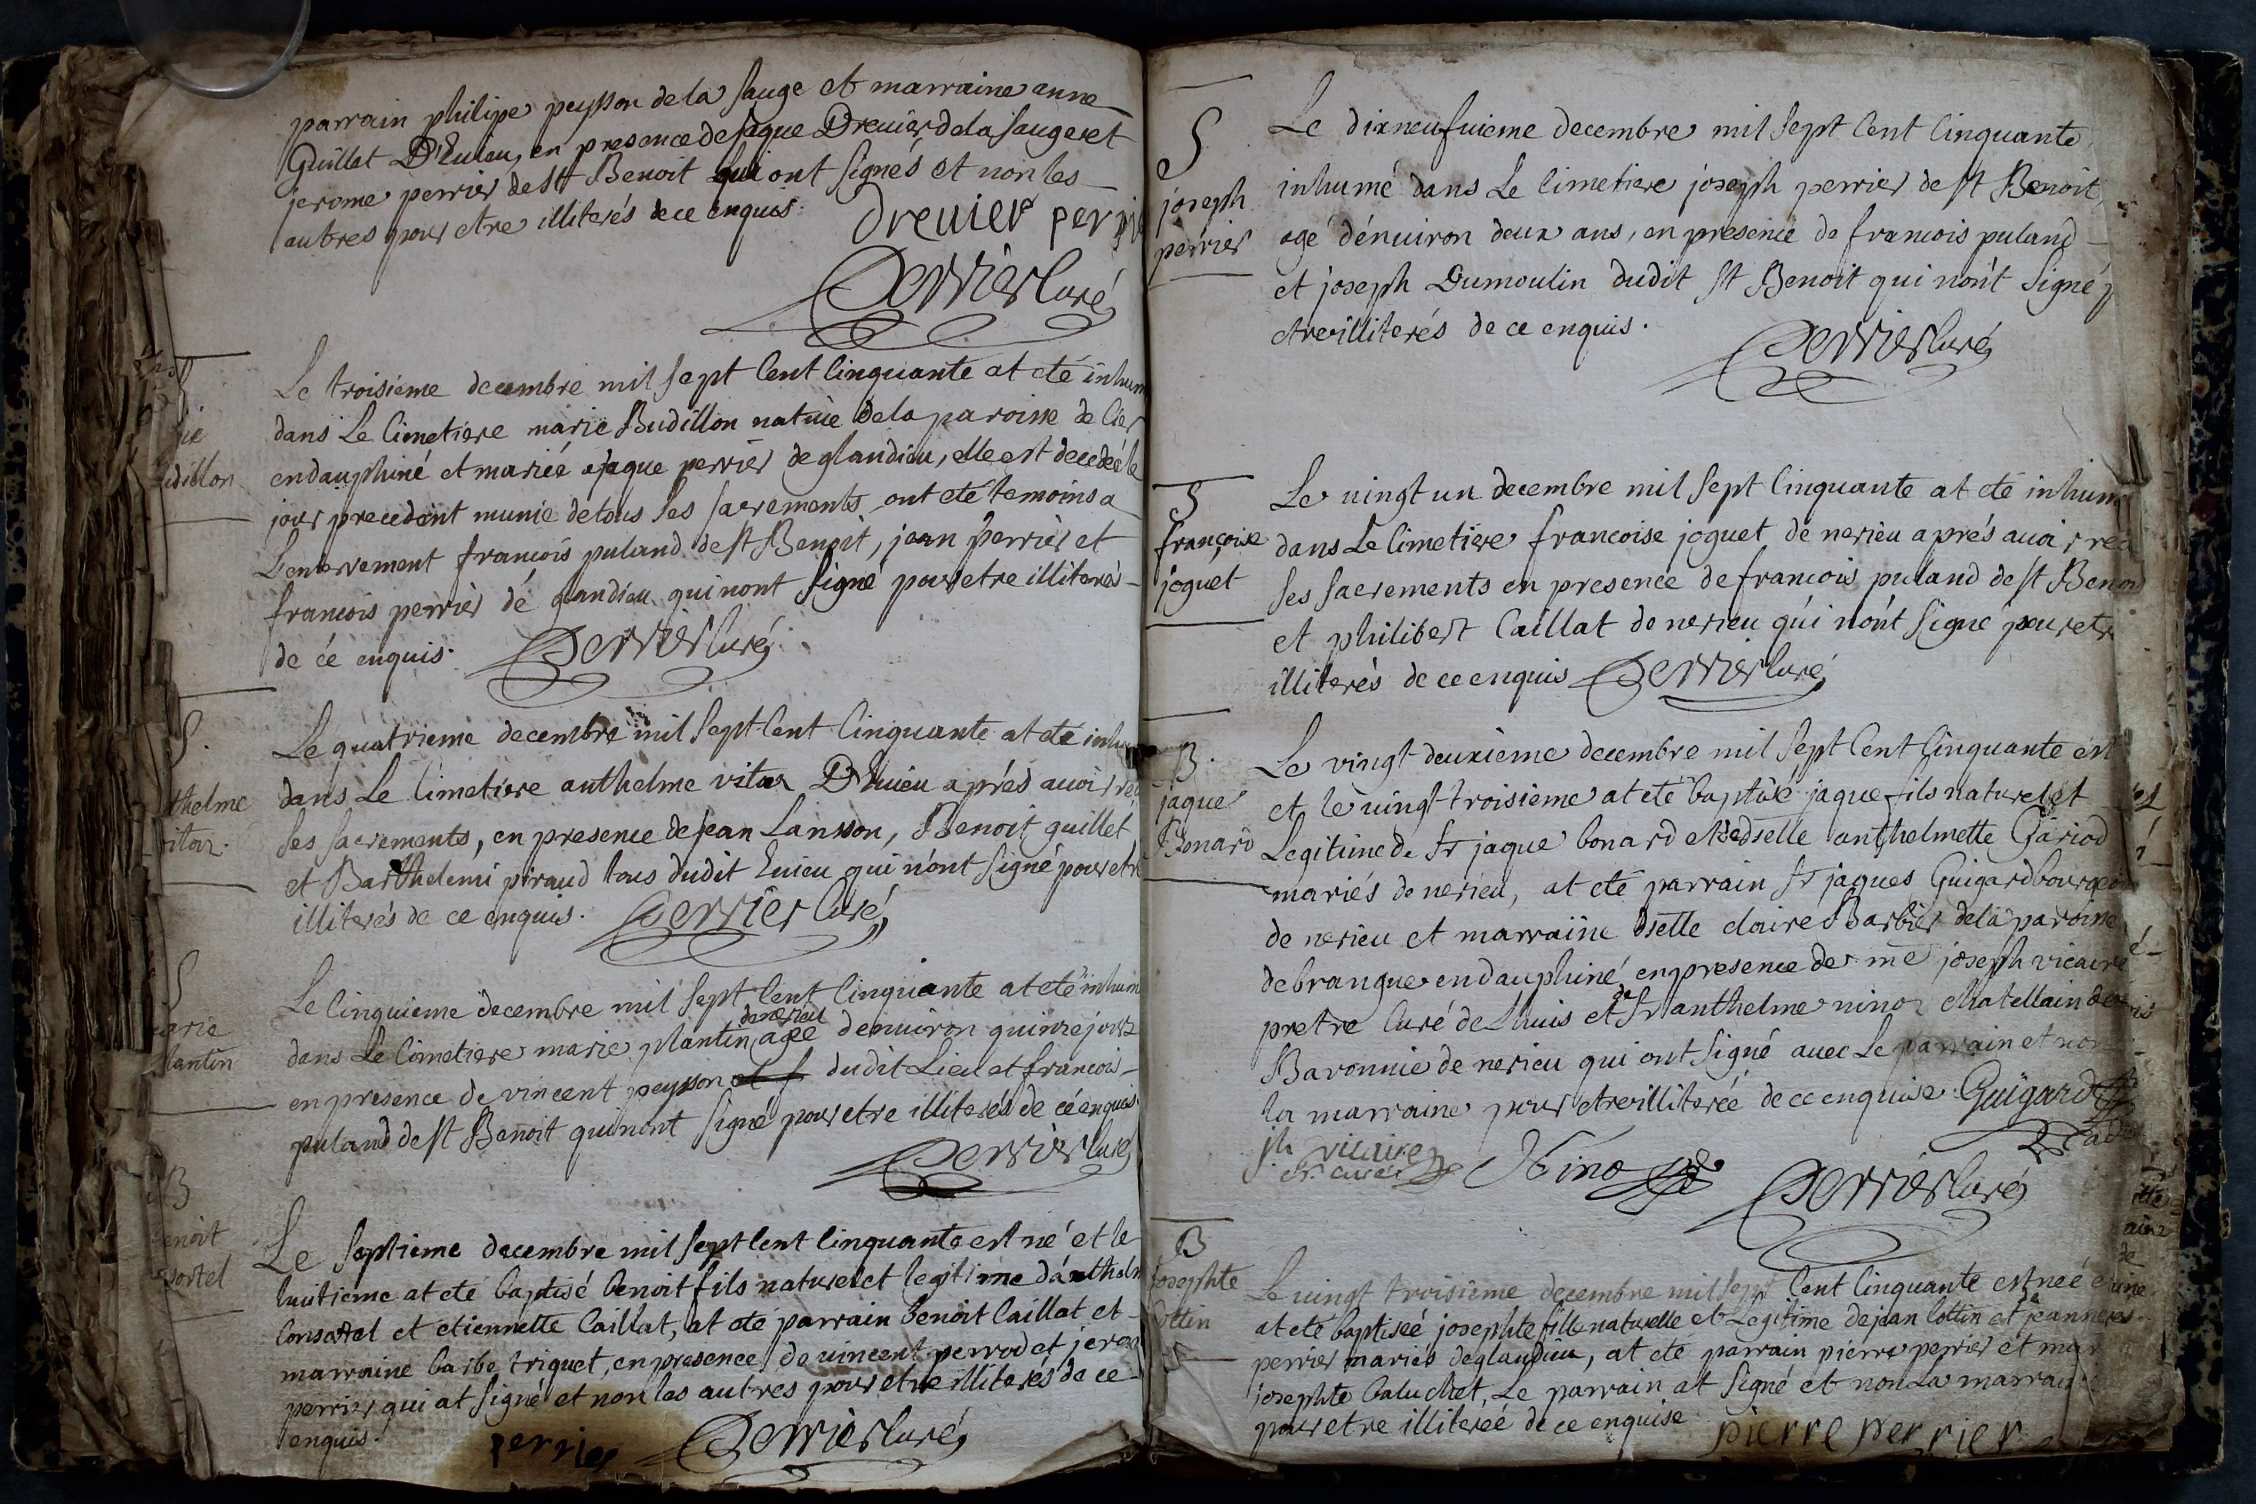 parrain philipe peysson de la sauge et marraine anne
Guillet D'Euieu, en presence de jaque Dreuier de la sauge et
jerome perrier de st Benoit qui ont signés et non les
autres pour etre illiterés de ce enquis.
dreuier perrie
Perrier Curé
Le troisieme decembre mil sept Cent Cinquante at eté inhum
dans Le Cimetiere marie Budillon natiue de la paroisse de Cier
en dauphiné et mariée a jaque perrier de glandieu, elle est decedée le
jour precedent munie de tous ses sacrements ont eté temoins a
L'enterrement francois puland de st Benoit, jean perrier et
francois perrier dé glandieu qui n'ont signé pour etre illiterés
de cé enquis. Perrier Curé
dillon
S.
thelme
vitoz.
Le quatrieme decembre mil sept Cent Cinquante at eté inhu
dans Le Cimetiere anthelme vitoz D'Euieu aprés auoir re
ses sacrements, en presence de jean Lansson, Benoit guillet
et Barthelemi piraud tous dudit Euieu qui n'ont signé pour etre
illiterés de ce enquis. Perrier Curé
S
arie
lantin
Le Cinquieme decembre mil sept Cent Cinquante at eté inhum
de nerieu
dans Le Cimetiere marie plantin agée d'enuiron quinze jours
en presence de vincent peysson et f dudit Lieu et francois
puland de st Benoit qui n'ont signé pour etre illiterés de cé enquis
Perrier Curé
B
enoit
sortel
Le septieme decembre mil sept Cent Cinquante est né et le
huitieme at eté baptisé benoit fils naturel et legitime d'anthelm
Consortel et etiennette Caillat, at eté parrain benoit Caillat et
marraine barbe triquet, en presence de vincent perrod et jerom
perrier qui at signé et non les autres pour etre illiterés de ce
enquis.
perrier Perrier Curé
S
joseph
perrier
Le dixneufuieme decembre mil sept Cent Cinquante
inhumé dans Le Cimetiere joseph perrier de st Benoit,
agé d'enuiron deux ans, en presence de francois puland
et joseph Dumoulin dudit st Benoit qui n'ont signé p
etre illiterés de ce enquis.
Perrier Curé
S
françoise
joguet
Le uingt un decembre mil sept Cinquante at eté inhum
dans Le Cimetiere francoise joguet de nerieu aprés auoir re
ses sacrements en presence de francois puland de st Benoi
et philibert Caillat de nerieu qui n'ont signé pour etr
illiterés de ce enquis Perrier Curé
B.
jaque
Bonard
Le vingt deuxieme decembre mil sept Cent Cinquante est
et le uingt troisieme at eté baptisé jaque fils naturel et
Legitime de sr jaque bonard et dedselle anthelmette Gariod
mariés de nerieu, at eté parrain sr jaques Guigard bourgeo
de nerieu et marraine dselle claire Barbier de la paroisse
de brangue en dauphiné en presence de me joseph vicaire
pretre Curé de Lhuis et de sr anthelme ninoz chatellain de
Baronnie de nerieu qui ont signé auec Le parrain et non
la marraine pour etre illiterée de ce enquise. Guigard
jh vicaire
ptr. curé Nino
Perrier Curé
B
josephte
Cottin
Le uingt troisieme decembre mil sept Cent Cinquante est neé e
at eté baptiseé josephte fille naturelle et Legitime de jean Cottin et de jeanne
perrier mariés de glandieu, at eté parrain pierre perrier et mar
josephte Caluchet, Le parrain at signé et non La marraine
pour etre illitereé de ce enquise
pierre perrier